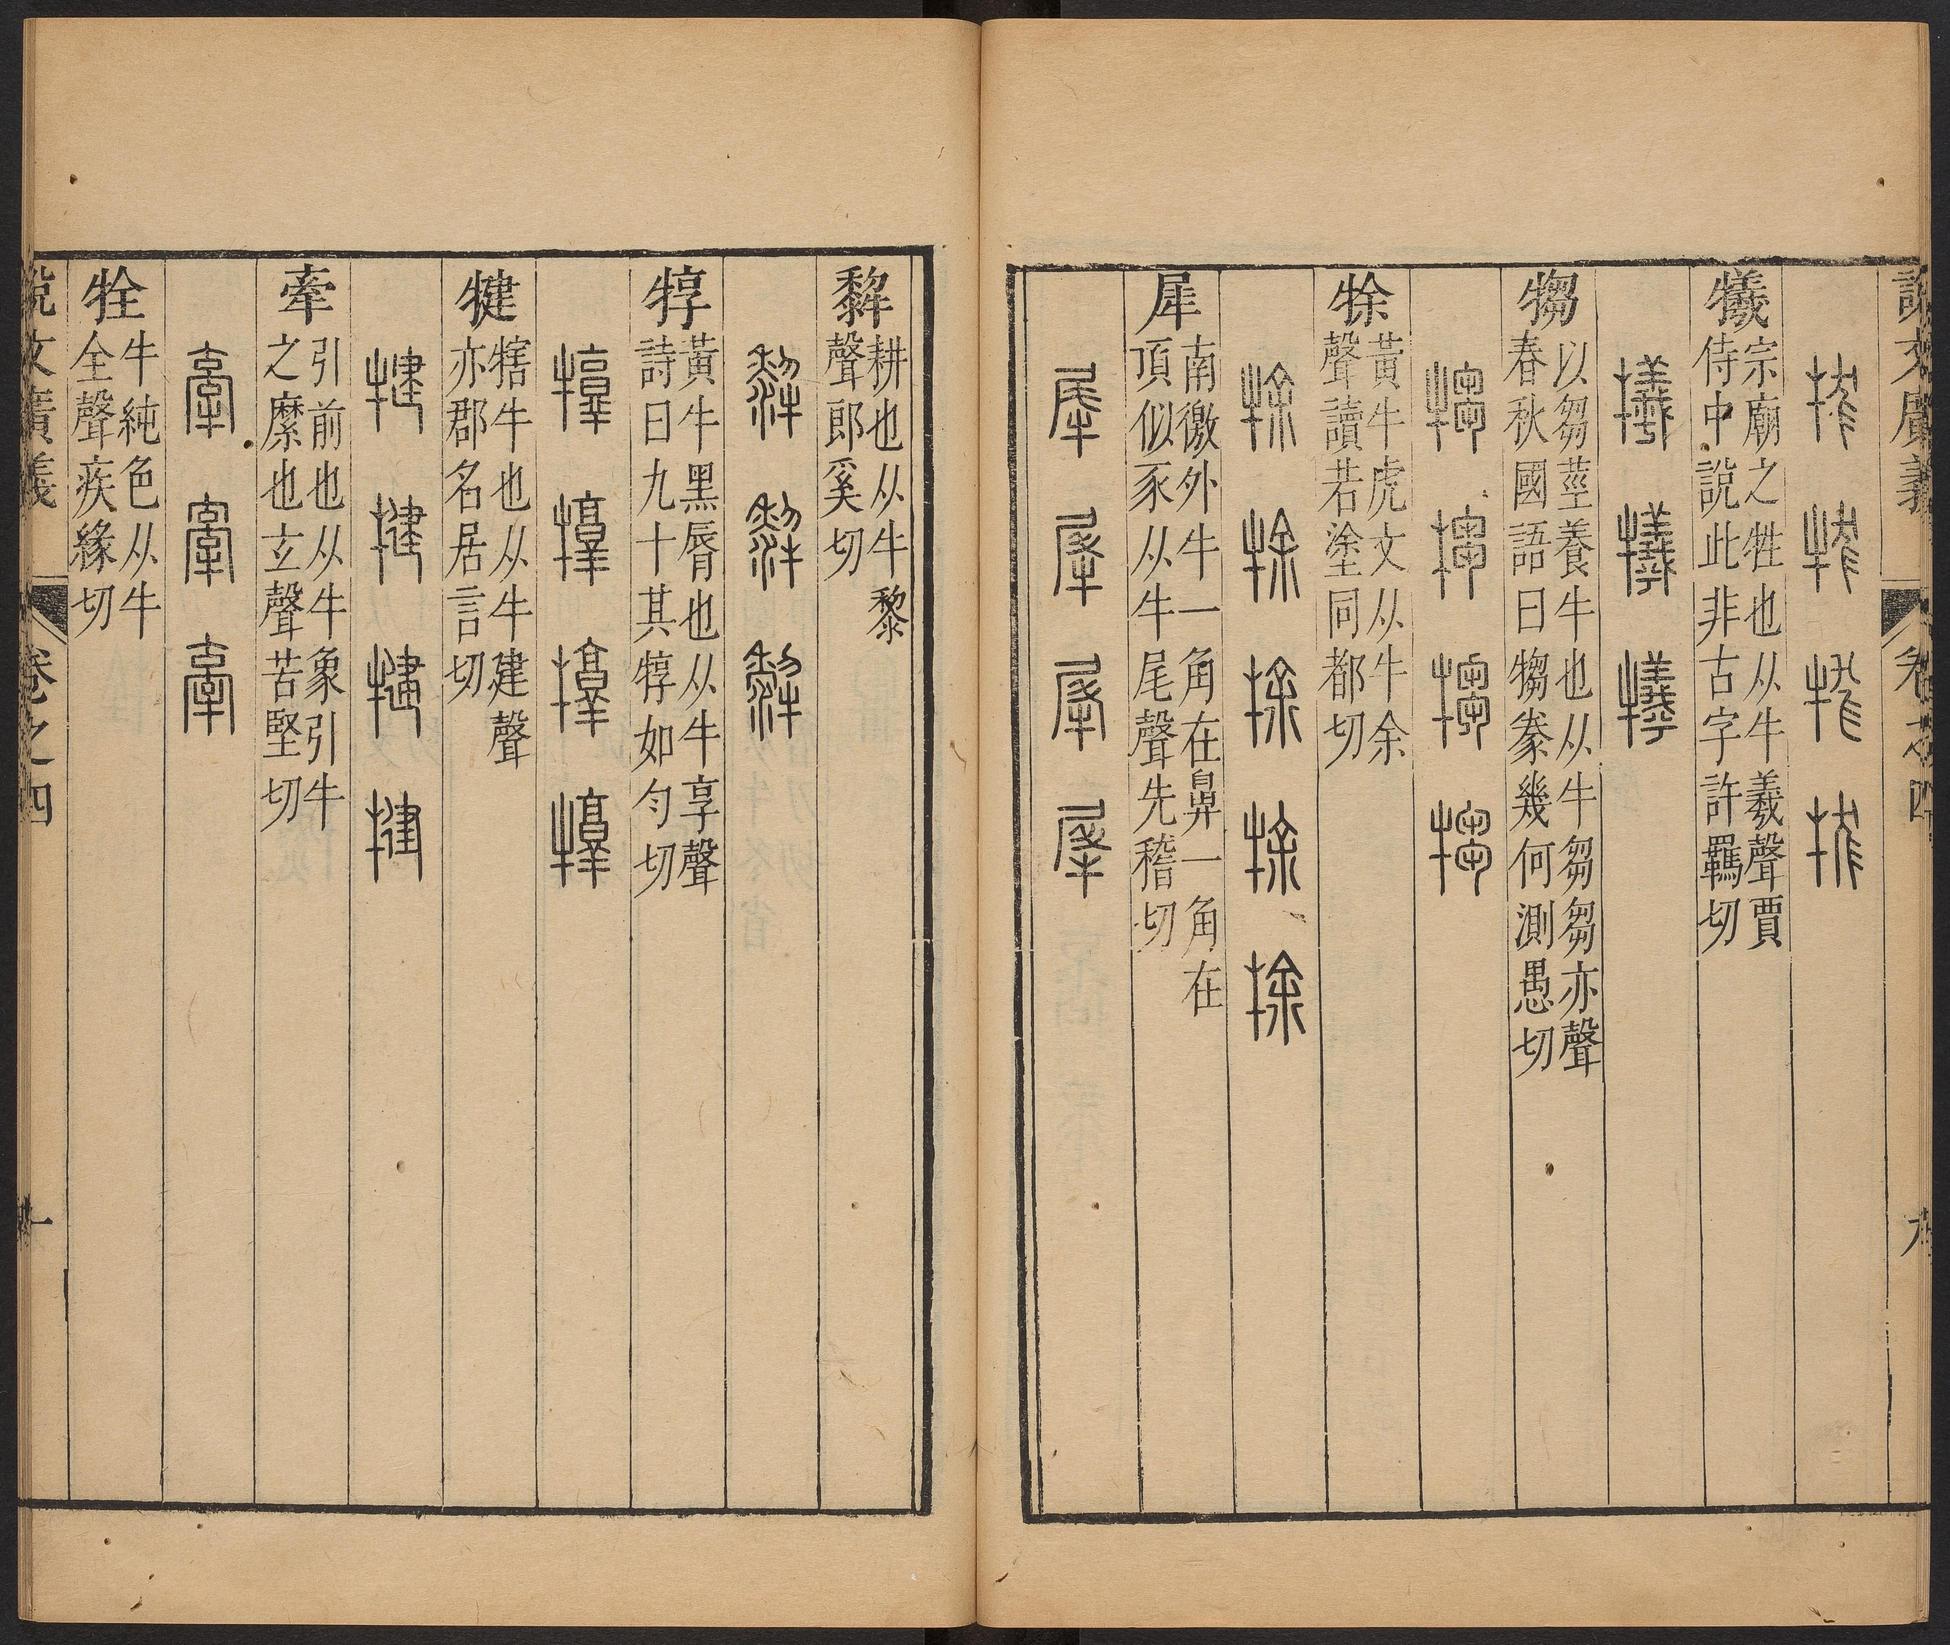 說文廣義
卷之四
九
犧
宗廟之牲也从牛羲聲賈
侍中說此非古字許羈切
犓
以芻莖養牛也从牛芻芻亦聲
春秋國語曰犓豢幾何測愚切
㻌
黃牛虎文从牛余
聲讀若塗同都切
犀
南徼外牛一角在鼻一角在
頂似豕从牛尾聲先稽切
犂
耕也从牛黎
聲郎奚切
犉
黃牛黑脣也从牛享聲
詩曰九十其犉如勻切
犍
犗牛也从牛建聲
亦郡名居言切
牽
引前也从牛象引牛
之縻也玄聲苦堅切
牷
牛純色从牛
全聲疾緣切
說文廣義
卷之四